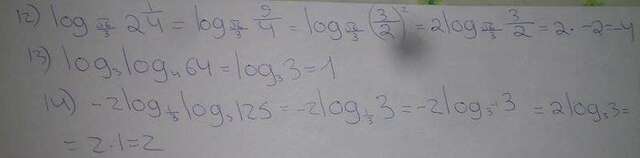 12) log_{√(2/3)} 2 1/4 = log_{√(2/3)} 9/4 = log_{√(2/3)} (3/2)² = 2log_{√(2/3)} 3/2 = 2·-2=-4
13) log₃log₄64 = log₃3 = 1
14) -2log_{1/3}log₅125 = -2log_{1/3}3 = -2log_{3⁻¹}3 = 2log₃3 =
= 2·1=2